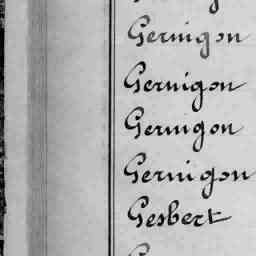 Gernigon
Gernigon
Gernigon
Gernigon
Gesbert